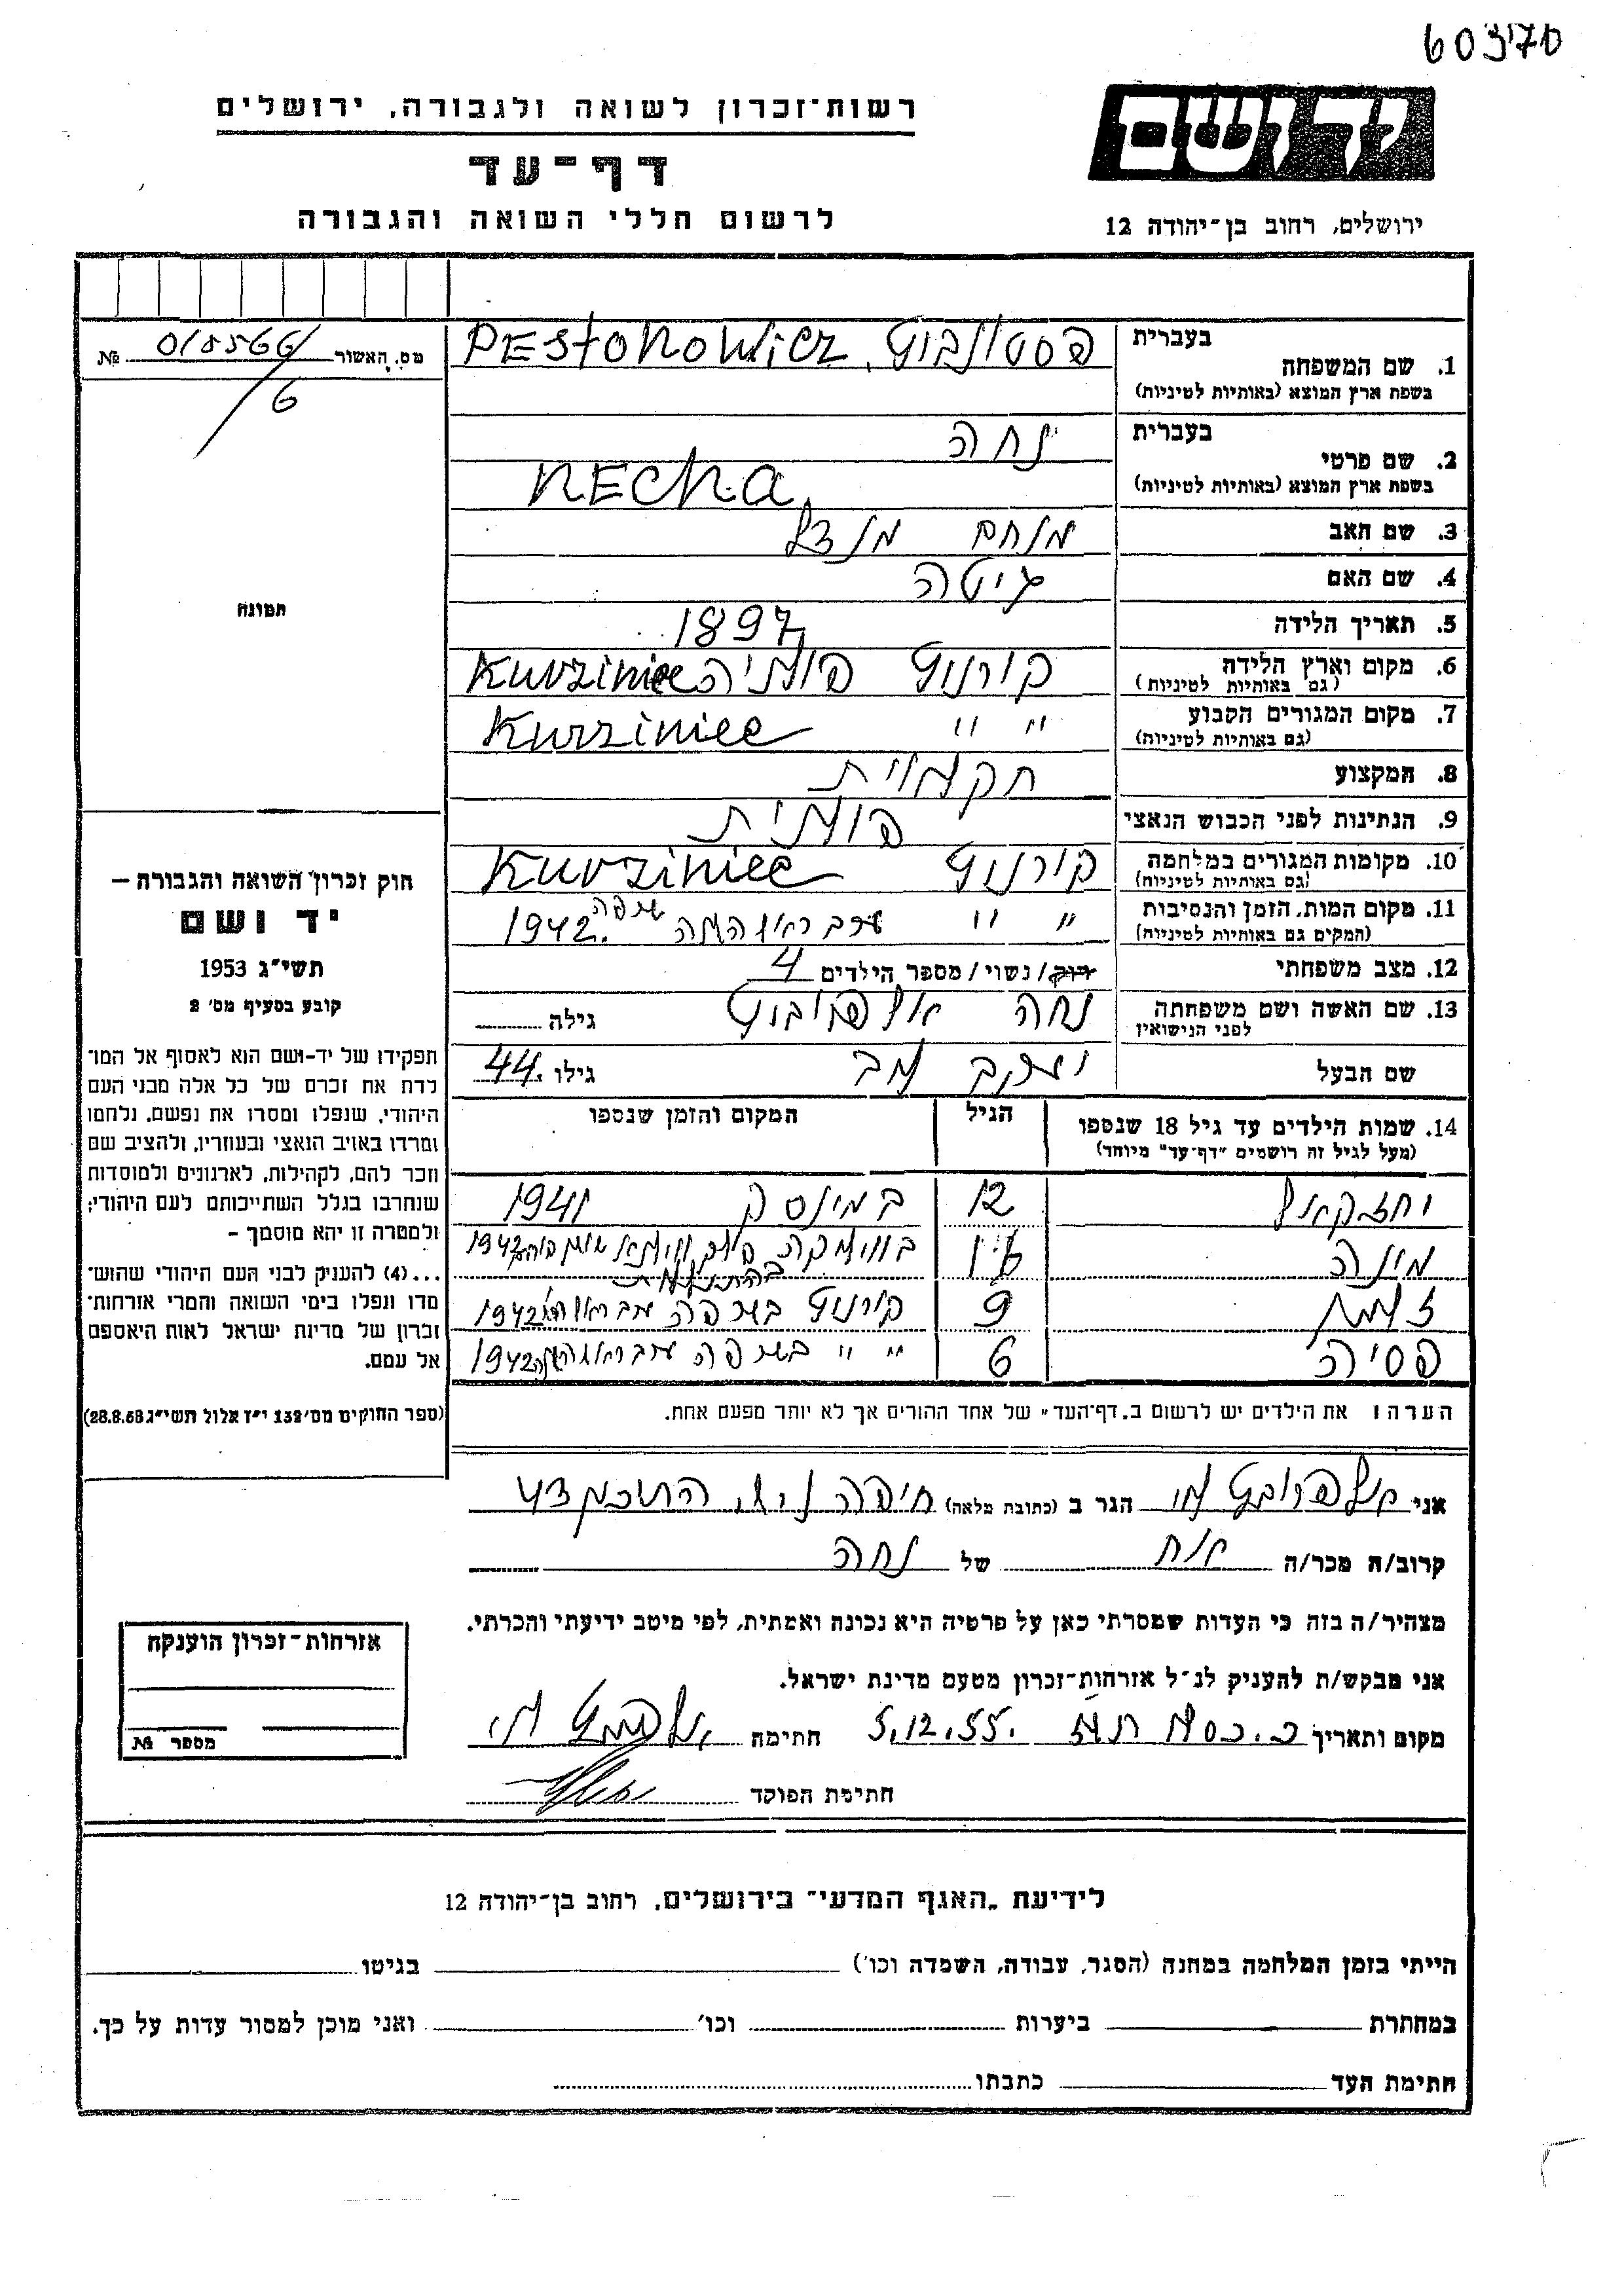 60370
רשות־זכרון לשואה ולגבורה, ירושלים
דף־עד
לרשום חללי השואה והגבורה
יד ושם
ירושלים, רחוב בן־יהודה 12
מס. האשור 018566/6 №
תמונה
חוק זכרון השואה והגבורה –
יד ושם
תשי״ג 1953
קובע בסעיף מס׳ 2
תפקידו של יד-ושם הוא לאסוף אל המו־
לדת את זכרם של כל אלה מבני העם
היהודי, שנפלו ומסרו את נפשם, נלחמו
ומרדו באויב הנאצי ובעוזריו, ולהציב שם
וזכר להם, לקהילות, לארגונים ולמוסדות
שנחרבו בגלל השתייכותם לעם היהודי;
ולמטרה זו יהא מוסמך –
...(4) להעניק לבני העם היהודי שהוש־
מדו ונפלו בימי השואה והמרי אזרחות־
זכרון של מדינת ישראל לאות היאספם
אל עמם.
(ספר החוקים מס׳ 132 י״ז אלול תשי״ג 28.8.53)
1. שם המשפחה בעברית פסטונוביץ, PEStONOWicz
בשפת ארץ המוצא (באותיות לטיניות)
2. שם פרטי בעברית נחה
בשפת ארץ המוצא (באותיות לטיניות) NECHA
3. שם האב מנחם מנדל
4. שם האם גיטה
5. תאריך הלידה 1897
6. מקום וארץ הלידה (גם באותיות לטיניות) קורניץ פולניה Kurziniec
7. מקום המגורים הקבוע (גם באותיות לטיניות) " " Kurziniec
8. המקצוע חקלאית
9. הנתינות לפני הכבוש הנאצי פולנית
10. מקומות המגורים במלחמה (גם באותיות לטיניות) קורניץ Kurziniec
11. מקום המות, הזמן והנסיבות (המקום גם באותיות לטיניות) " " ערב ראש השנה שרפה 1942.
12. מצב משפחתי רוק/נשוי/מספר הילדים 4
13. שם האשה ושם משפחתה לפני הנישואין נחה אלפרוביץ גילה
שם הבעל יעקב לב גילו 44.
14. שמות הילדים עד גיל 18 שנספו
(מעל לגיל זה רושמים "דף־עד" מיוחד)
הגיל
המקום והזמן שנספו
יחזקאל 12 במינסק 1941
מינה
זלמן 9 קורניץ בשרפה ערב ראש השנה 1942
פסיה 6 " " בשרפה ערב ראש השנה 1942
הערה: את הילדים יש לרשום ב„דף־העד״ של אחד ההורים אך לא יותר מפעם אחת.
אני אלפרוביץ הגר ב (כתובת מלאה) חיפה
קרוב/ה מכר/ה אח של נחה
מצהיר/ה בזה כי העדות שמסרתי כאן על פרטיה היא נכונה ואמתית, לפי מיטב ידיעתי והכרתי.
אני מבקש/ת להעניק לנ״ל אזרחות־זכרון מטעם מדינת ישראל.
מקום ותאריך 5.12.55. חתימה
חתימת הפוקד
אזרחות־זכרון הוענקה
מספר №
לידיעת „האגף המדעי״ בירושלים, רחוב בן־יהודה 12
הייתי בזמן המלחמה במחנה (הסגר, עבודה, השמדה וכו׳) בגיטו
במחתרת ביערות וכו׳ ואני מוכן למסור עדות על כך.
חתימת העד כתבתו